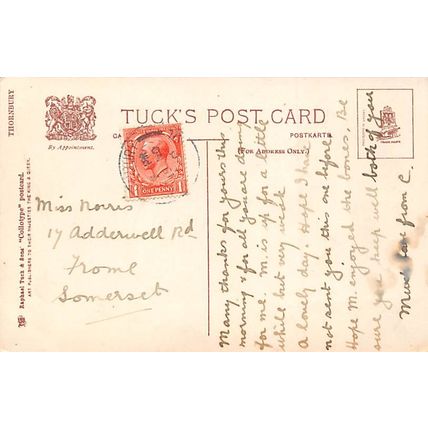 THORNBURY
By Appointment.
TUCK'S POST CARD
POSTKARTE
(FOR ADDRESS ONLY.)
Raphael Tuck & Sons' "Collotype" postcard.
ART PUBLISHERS TO THEIR MAJESTIES THE KING & QUEEN.
TRADE MARK
ONE PENNY
Miss Norris
17 Adderwell Rd
Frome
Somerset
Many thanks for yours this
morning & for all you are doing
for me. M. is up for a little
while but very weak
A lovely day. Hope I have
not sent you this one before
Hope M. enjoyed the bones. Be
sure you keep well both of you
Much love from C.